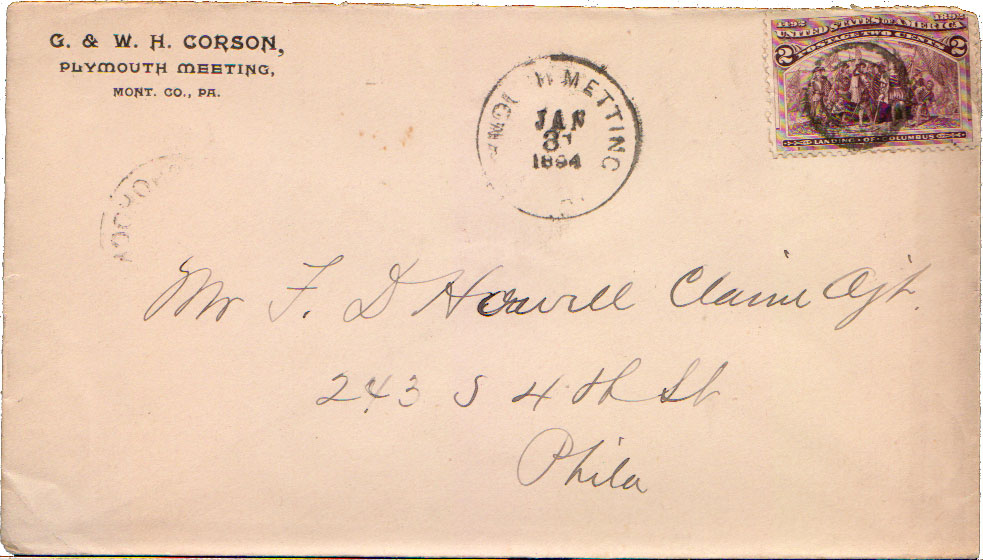 G. & W. H. CORSON,
PLYMOUTH MEETING,
MONT. CO., PA.
H METTING
JAN
31
1894
1492 1892
UNITED STATES OF AMERICA
POSTAGE TWO CENTS
2 2
LANDING OF COLUMBUS
Mr F. D Howell Claim Agt.
243 S 4th St
Phila